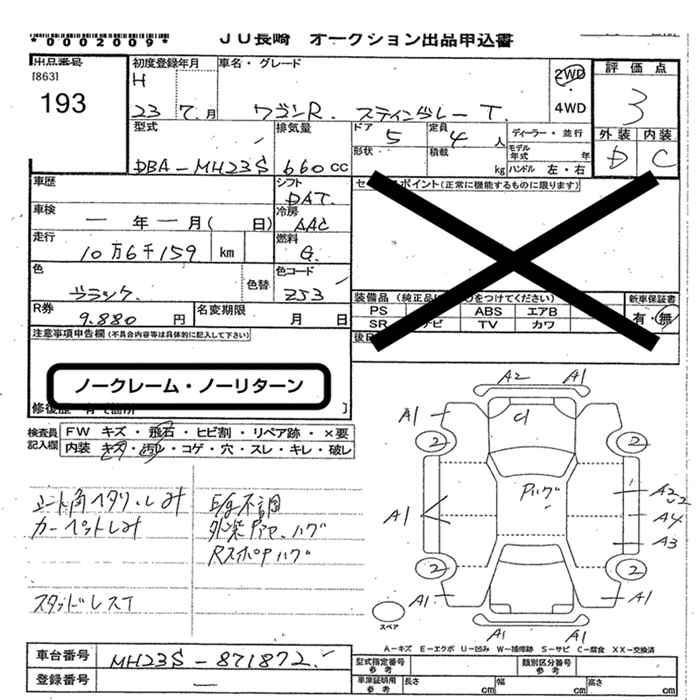 *0002009*
JU長崎 オークション出品申込書
出品番号
[863]
193
初度登録年月
H
23 7. 月
車名・グレード
ワゴンR. スティングレー T.
2WD
4WD
評価点
3
外装 内装
D C
型式
DBA-MH23S
排気量
660 cc
ドア
5
定員
4 人
形状
積載
kg
ディーラー・並行
モデル年式 年
ハンドル 左・右
車歴
シフト
DAT.
車検
一 年 一 月( 日)
冷房
AAC
走行
10万6千159 km
燃料
G.
色
ブラック.
色替
色コード
ZJ3
R券
9.880 円
名変期限
月 日
セールスポイント(正常に機能するものに限ります)
装備品(純正品に○をつけてください)
PS
ABS エアB
SR TV カワ
新車保証書
有・無
注意事項申告欄(不具合内容等は具体的に記入して下さい)
ノークレーム・ノーリターン
修復歴
検査員記入欄
FW キズ・飛石・ヒビ割・リペア跡・×要
内装 キズ・汚レ・コゲ・穴・スレ・キレ・破レ
シート角ヘタリ・しみ
カーペットしみ
E/g不調
外装Pアセ、ハゲ
RスポPハゲ
スタッドレスT
A2 A1
A1 C1
2 2
Pハゲ
A1
A2
A4
A3
2 2
A1 A1
A1 A1
スペア
A-キズ E-エクボ U-凹み W-補修跡 S-サビ C-腐食 XX-交換済
車台番号
MH23S-871872.
登録番号
—
型式指定番号
参考
類別区分番号
参考
車庫証明用
参考
長さ cm
幅 cm
高さ cm